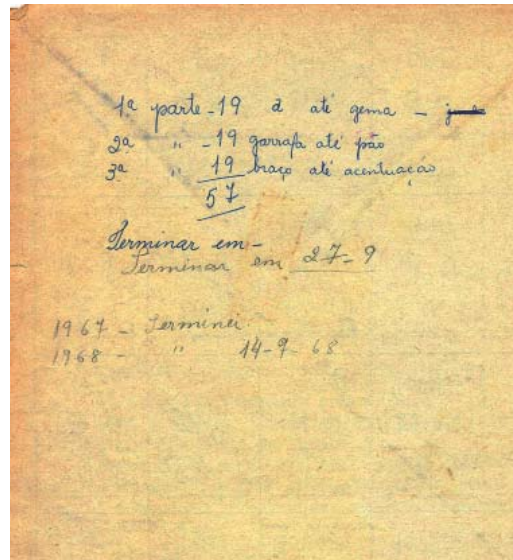 1ª parte - 19 a até gema -
2ª " - 19 garrafa até pão
3ª " 19 braço até acentuação
57
Terminar em -
Terminar em 27-9
1967 - Terminei
1968 - " 14-9-68